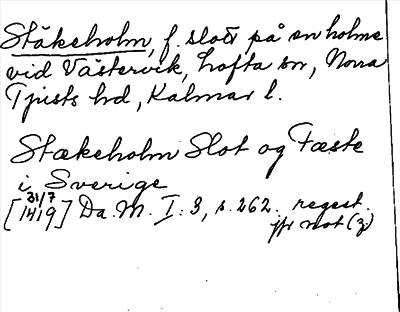 Stäkeholm, f. slott på en holme
vid Västervik, Lofta sn, Norra
Tjusts hd, Kalmar l.
Stækeholm Slot og Fæste
i Sverige
[31/7 1419] Da. M. I: 3, s. 262. regest.
jfr not (z)